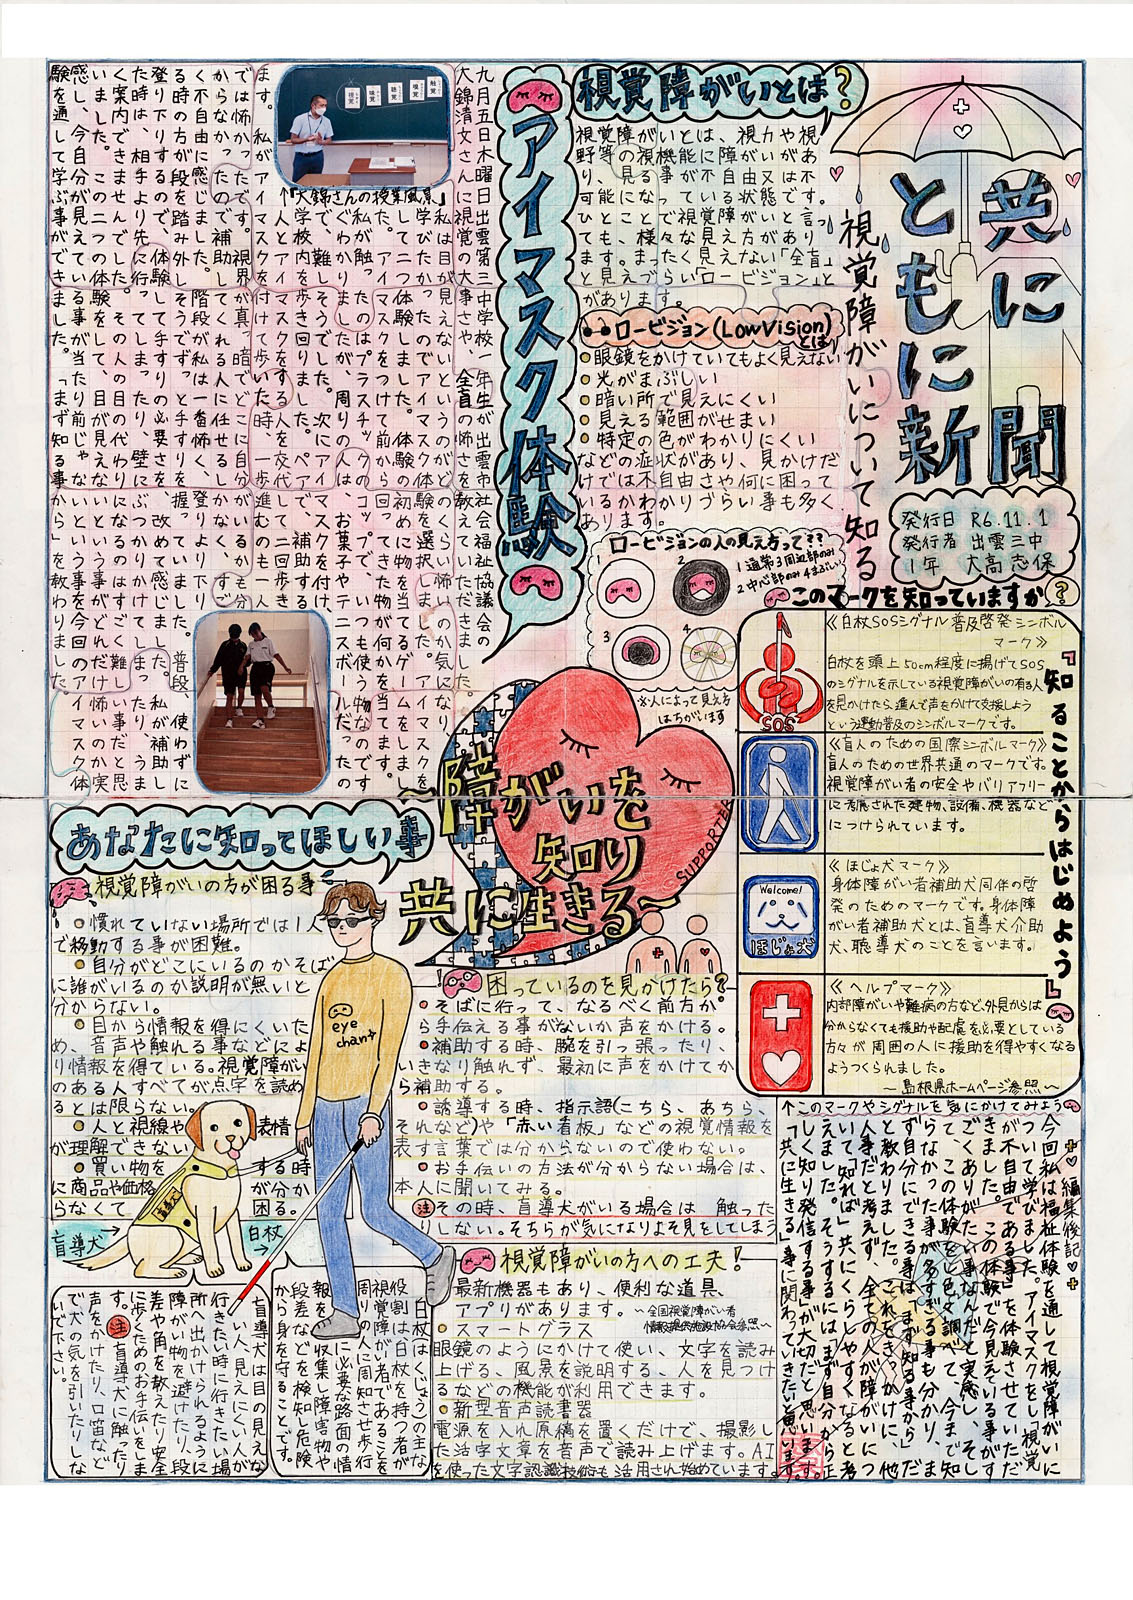 共に
ともに
新聞
視覚障がいについて知る
発行日 R6.11.1
発行者 出雲三中
1年 大高志保
視覚障がいとは?
視覚障がいとは、視力や視
野等の視機能に障がいがあ
り、見る事が不自由又は不
可能になっている状態です。
ひとことで視覚障がいと言っ
ても、様々な見え方があり
ます。まったく見えない「全盲」
と見えづらい「ロービジョン」と
があります。
ロービジョン(LowVision)
とは!
眼鏡をかけていてもよく見えない
光がまぶしい
暗い所で見えにくい
見える範囲がせまい
特定の色がわかりにくい
などの症状があり、見かけだ
けでは不自由さや何に困って
いるかわかりづらい事も多く
あります。
ロービジョンの人の見え方って???
1 通常 3 周辺部のみ
2 中心部のみ 4 まぶしい
1
2
3
4
※人によって見え方
はちがいます
アイマスク体験
九月五日木曜日出雲第三中学校一年生が出雲市社会福祉協議会の
大錦清文さんに視覚の大事さや、全盲の怖さを教えていただきました。
私は目が見えないというのがどのくらい怖いのか気になり、アイマスクを
学びたかったのでアイマスク体験を選択しました。アイマスクを
して二つ体験しました。体験の初めに物を当てるゲームをしまし
た。アイマスクをつけて前から回ってきた物が何かを当てます。
私が触ったのはプラスチックのコップで、いつも使う物なのです
ぐわかりましたが、周りの人は、お菓子やテニスボールだったの
で、難しそうでした。次にアイマスクを付け、
学校内を歩き回りました。ペアで、補助する
人とアイマスクをする人を交代して二回歩き
ます。私がアイマスクを付けて歩いた時、一歩進むのも一人
では怖かったです。視界が真っ暗でどこに自分がいるかも分
からなかったので補助してくれる人に任せるしかなく、すご
く不自由に感じました。階段が私は一番怖く、登りより下り
る時の方が段を踏み外しそうでずっと手すりを握っていました。普段、使わずに
登り下りするので、体験して手すりの必要さを、改めて感じました。私が補助し
た時は、相手より先に行ってしまったり、壁にぶつかってしまったりしてうまし
く案内できませんでした。その人の目の代わりになるのはすごく難しい事だと思
いました。この二つの体験をして、目が見えないという事がどれだけ怖いのか実
感し、今自分が見えている事が当たり前じゃないという事を今回のアイマスク体
験を通して学ぶ事ができました。「まず知る事から」を教わりました
↑『大錦さんの授業風景』
視覚
味覚
聴覚
嗅覚
触覚
~障がいを
知り
共に生きる~
SUPPORTER
このマークを知っていますか?
『知ることからはじめよう』
《白杖SOSシグナル普及啓発シンボル
マーク》
白杖を頭上50cm程度に揚げてSOS
のシグナルを示している視覚障がいの有る人
を見かけたら、進んで声をかけて支援しよう
という運動普及のシンボルマークです。
SOS
《盲人のための国際シンボルマーク》
盲人のための世界共通のマークです。
視覚障がい者の安全やバリアフリー
に考慮された建物、設備、機器など
につけられています。
《ほじょ犬マーク》
身体障がい者補助犬同伴の啓
発のためのマークです。身体障
がい者補助犬とは、盲導犬介助
犬、聴導犬のことを言います。
Welcome!
ほじょ犬
《ヘルプマーク》
内部障がいや難病の方など、外見からは
分からなくても援助や配慮を必要としている
方々が周囲の人に援助を得やすくなる
ようつくられました。
~島根県ホームページ参照~
↑このマークやシグナルを気にかけてみよう
あなたに知ってほしい事
視覚障がいの方が困る事
慣れていない場所では1人
で移動する事が困難。
自分がどこにいるのかそば
に誰がいるのか説明が無いと
分からない。
目から情報を得にくいた
め、音声や触れる事などによ
り情報を得ている。視覚障がい
のある人すべてが点字を読め
るとは限らない。
人と視線や表情
が理解できない
買い物をする時
に商品や価格が分か
らなくて困る。
eye
chan↑
盲導犬
白杖
困っているのを見かけたら?
そばに行って、なるべく前方か
ら手伝える事がないか声をかける。
補助する時、腕を引っ張ったり、
いきなり触れず、最初に声をかけてか
ら補助する。
誘導する時、指示語(こちら、あちら、
それなど)や「赤い看板」などの視覚情報を
表す言葉では分からないので使わない。
お手伝いの方法が分からない場合は、
本人に聞いてみる。
注その時、盲導犬がいる場合は触った
りしない。そちらが気になりよそ見をしてしまう
視覚障がいの方への工夫!
最新機器もあり、便利な道具、
アプリがあります。~全国視覚障がい者
情報提供施設協会参照~
スマートグラス
眼鏡のようにかけて使い、文字を読み
上げる、風景を説明する、人を見つけ
るなどの機能が利用できます。
新型音声読書器
電源を入れ原稿を置くだけで、撮影し
た活字文章を音声で読み上げます。AI
を使った文字認識技術も活用され始めています。
白杖(はくじょう)の主な
役割は、白杖を持つ者が
視覚障がい者であることを
周りの人に周知させ歩行
に必要な路面の情
報を収集し障害物や
段差などを検知し危険
から身を守ることです。
盲導犬は目の見えな
い人、見えにくい人が
行きたい時に行きたい場
所へ出かけられるように
障がい物を避けたり、段
差や角を教えたり安全
に歩くためのお手伝いをしま
す。注盲導犬に触ったり
声をかけたり、口笛など
で犬の気を引いたりしな
いで下さい。
編集後記
今回私は福祉体験を通して視覚障がいに
ついて学びました。アイマスクをし「視覚
が不自由である事」を体験させていただ
きました。この体験で今見えている事がす
ごくありがたい事なんだと実感し、そし
て、この体験をし色々と調べて、今まで知
らなかった事が多すぎる事も分かり、ま
ず自分にできる事は「まず知る事から」だ
と教わりました。これをきっかけに、他
人事だと考えず、全ての人が障がいにつ
いて知れば「共に」くらしやすくなると考
えました。そうするにはまず自分から正
しく知り発信する事が大切だと思います。
「共に生きる」事に関わっていきたいと思います。